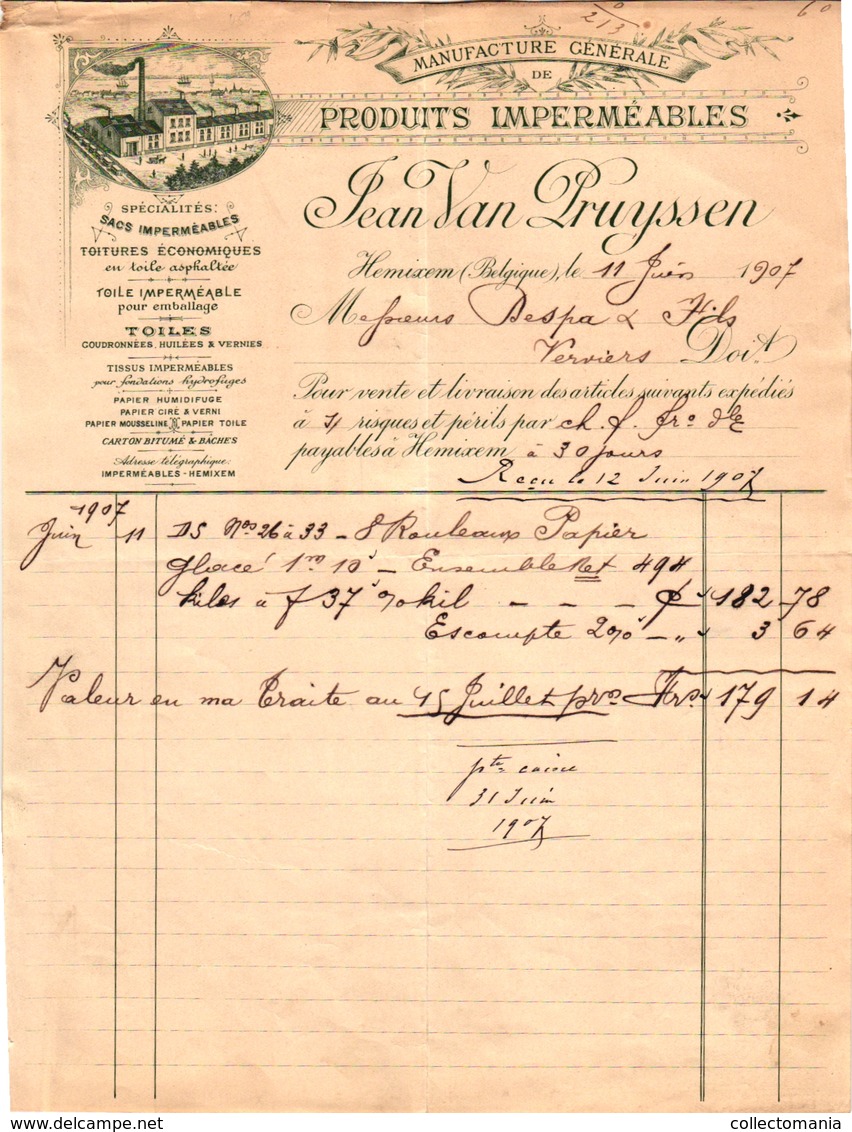 213
60
MANUFACTURE GÉNÉRALE
DE
PRODUITS IMPERMÉABLES
Jean Van Pruyssen
SPÉCIALITÉS:
SACS IMPERMÉABLES
TOITURES ÉCONOMIQUES
en toile asphaltée
TOILE IMPERMÉABLE
pour emballage
TOILES
GOUDRONNÉES, HUILÉES & VERNIES
TISSUS IMPERMÉABLES
pour fondations hydrofuges
PAPIER HUMIDIFUGE
PAPIER CIRÉ & VERNI
PAPIER MOUSSELINE PAPIER TOILE
CARTON BITUMÉ & BÂCHES
Adresse télégraphique:
IMPERMÉABLES-HEMIXEM
Hemixem (Belgique), le 11 Juin 1907
Messieurs Despa & Fils
Verviers Doit
Pour vente et livraison des articles suivants expédiés
à risques et périls par ch. f. fro dle
payables à Hemixem à 30 jours
Reçu le 12 Juin 1907
1907
Juin 11 DS Nos 26 à 33 - 8 Rouleaux Papier
glacé 1m 10 - Ensemble Net 494
kilos à f 37 % kil - - - 182 78
Escompte 2% - „ 3 64
Valeur en ma Traite au 15 Juillet pro Frs 179 14
pte caisse
31 Juin
1907
collectomania